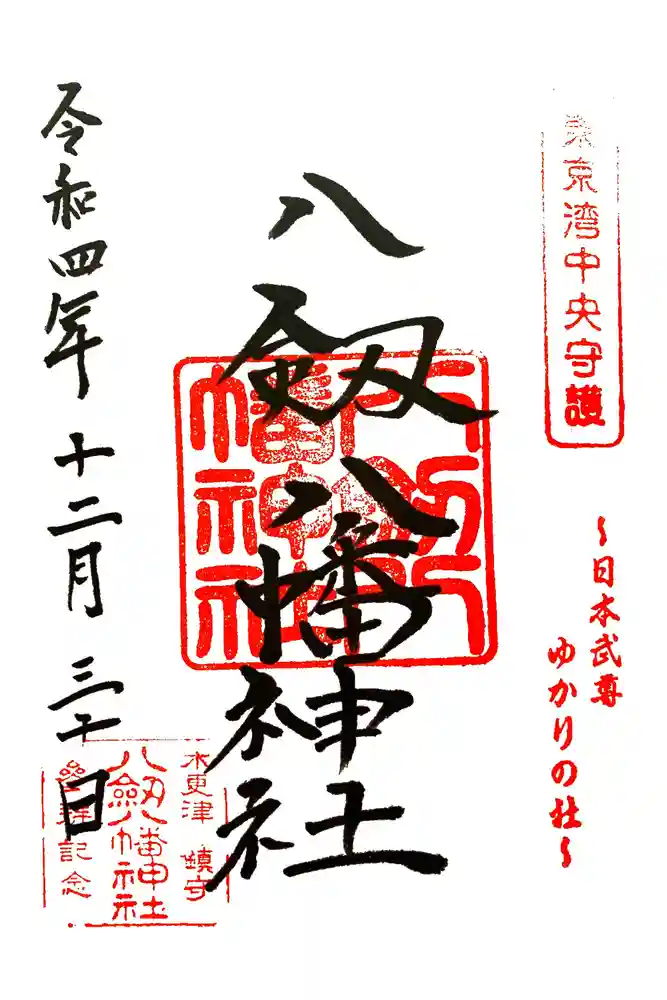 東京湾中央守護
~日本武尊
ゆかりの社~
八剱八幡神社
八剱八
幡神社
令和四年十二月三十日
木更津 鎮守
八剱八幡神社
参拝記念